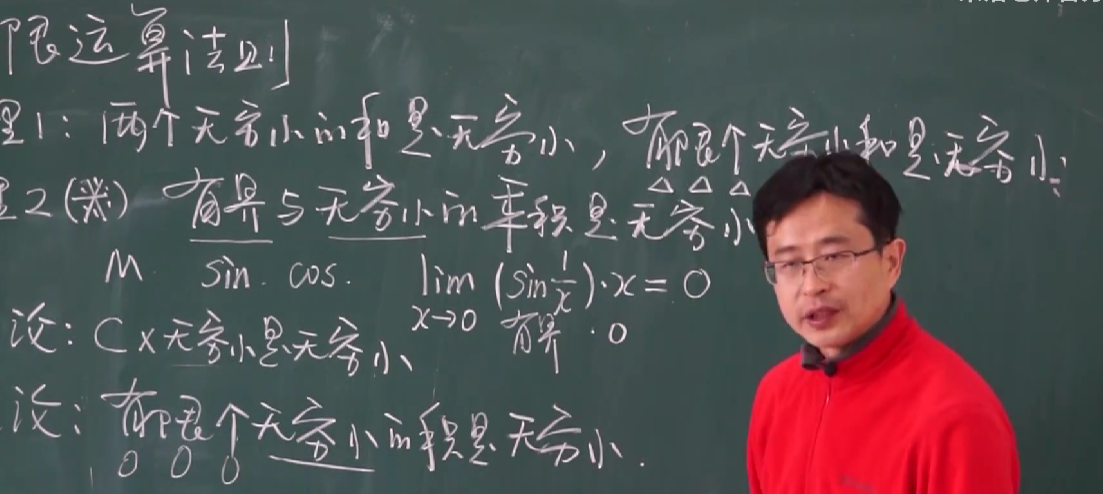 限运算法则
理1：两个无穷小的和是无穷小，有限个无穷小和是无穷小；
理2(米) 有界与无穷小的乘积是无穷小
M. sin. cos. lim (sin 1/x)·x = 0
x→0 有界·0
论：C×无穷小是无穷小
论：有限个无穷小的积是无穷小.
0 0 0